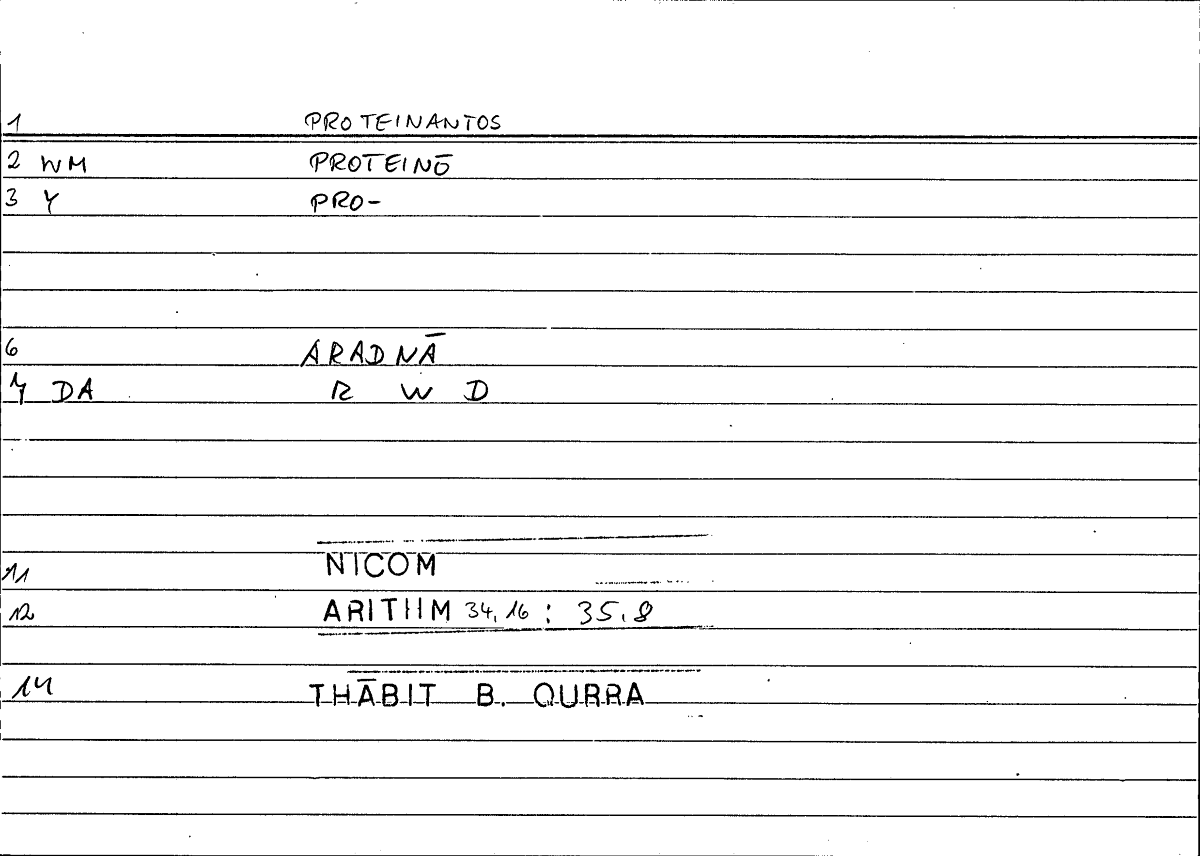 1 PROTEINANTOS
2 WM PROTEINŌ
3 Y PRO-
6 ARADNĀ
7 DA R W D
11 NICOM
12 ARITHM 34,16 : 35,8
14 THĀBIT B. QURRA